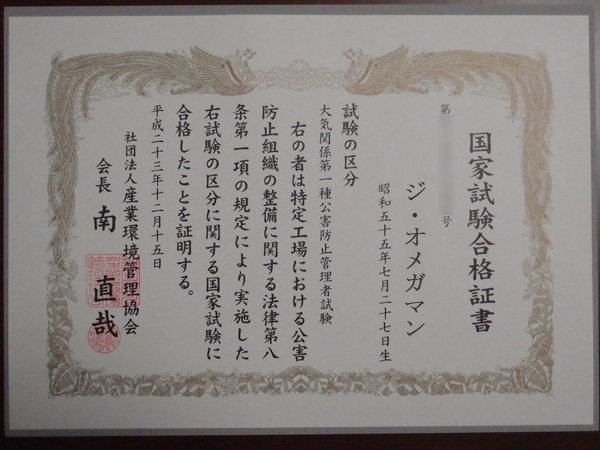 国家試験合格証書
第 号
ジ・オメガマン
昭和五十五年七月二十七日生
試験の区分
大気関係第一種公害防止管理者試験
右の者は特定工場における公害
防止組織の整備に関する法律第八
条第一項の規定により実施した
右試験の区分に関する国家試験に
合格したことを証明する。
平成二十三年十二月十五日
社団法人産業環境管理協会
会長 南 直哉